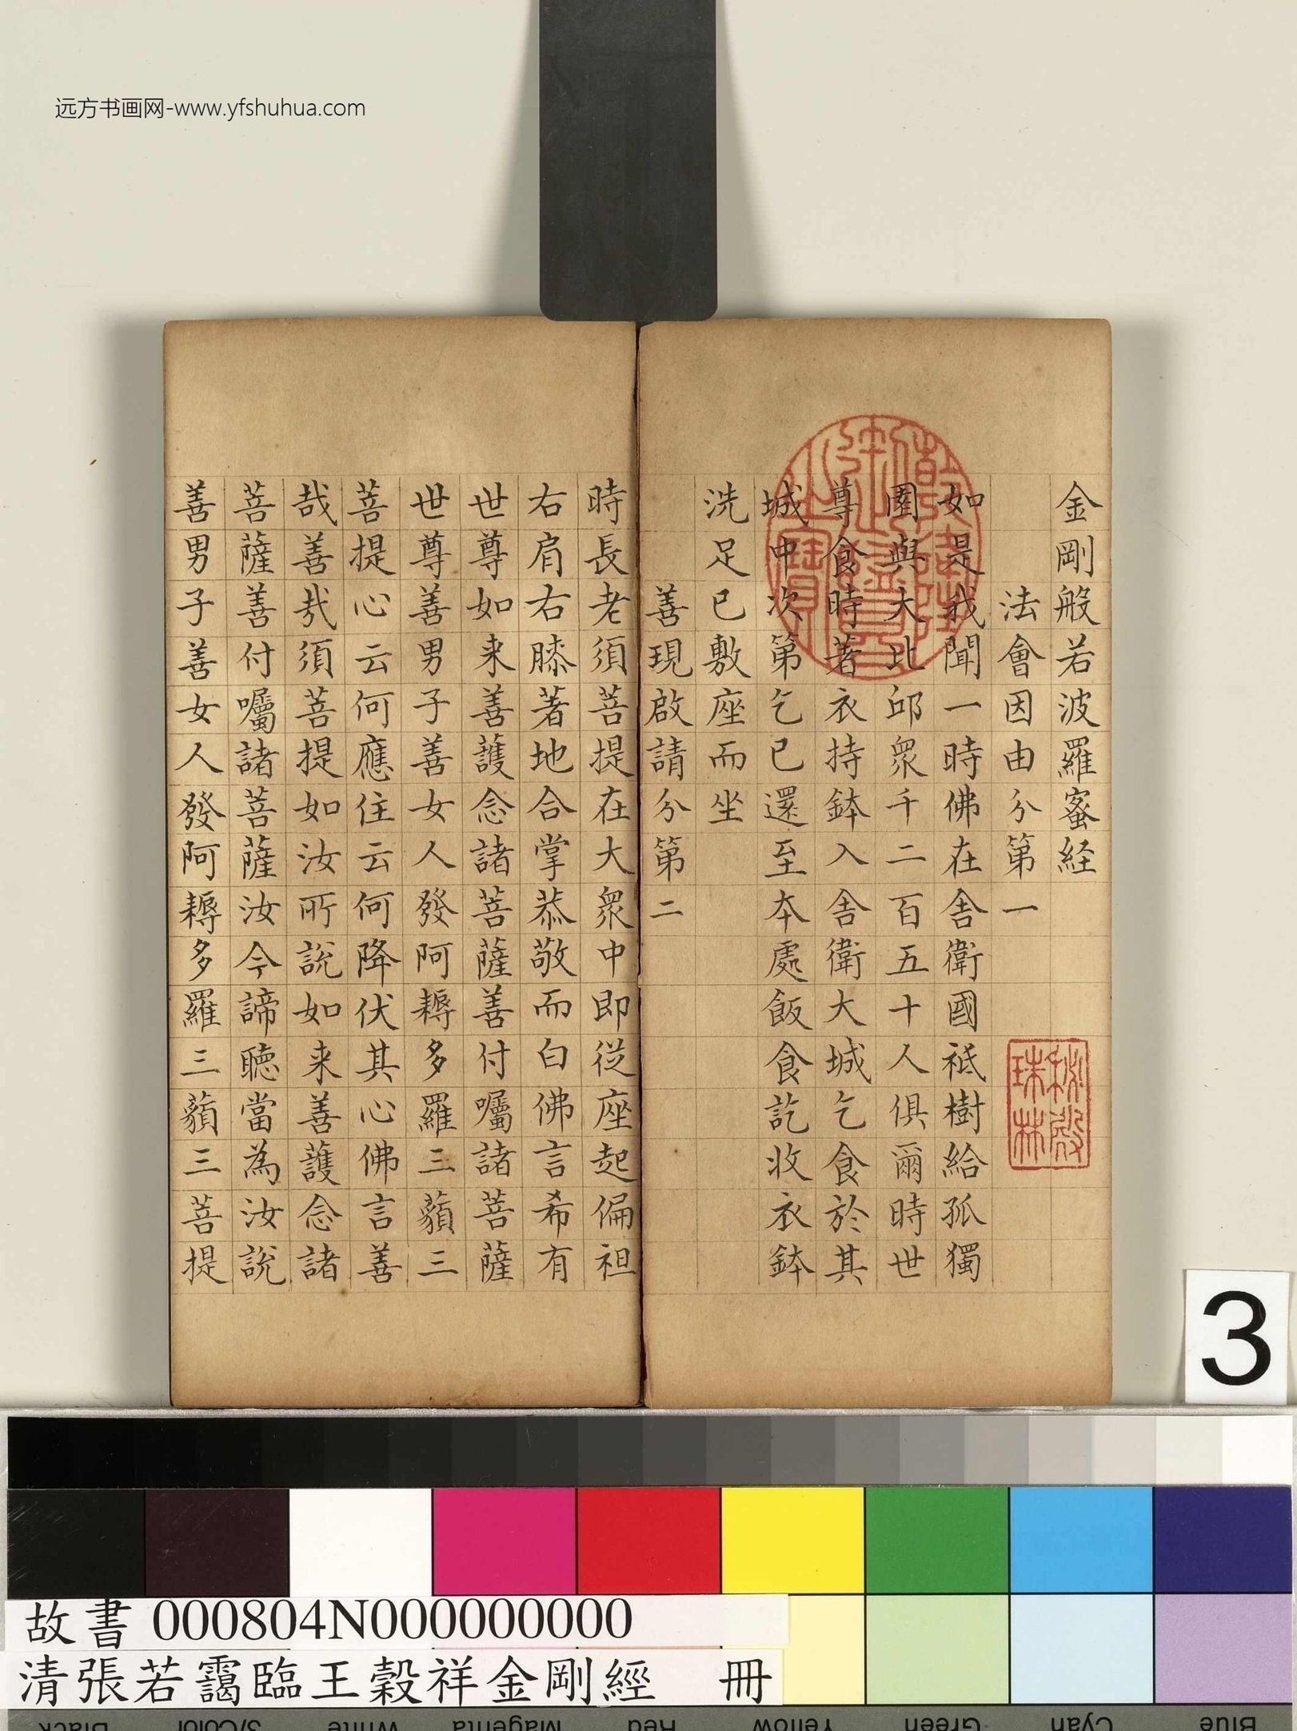 远方书画网-www.yfshuhua.com
金剛般若波羅蜜経
法會因由分第一
如是我聞一時佛在舎衛國祗樹給孤獨
園與大比邱衆千二百五十人俱爾時世
尊食時著衣持鉢入舎衛大城乞食於其
城中次第乞已還至本處飯食訖收衣鉢
洗足已敷座而坐
善現啟請分第二
時長老須菩提在大衆中即從座起偏袒
右肩右膝著地合掌恭敬而白佛言希有
世尊如来善護念諸菩薩善付囑諸菩薩
世尊善男子善女人發阿耨多羅三藐三
菩提心云何應住云何降伏其心佛言善
哉善哉須菩提如汝所說如来善護念諸
菩薩善付囑諸菩薩汝今諦聽當為汝說
善男子善女人發阿耨多羅三藐三菩提
乾隆御覽之寶
秘殿
珠林
3
故書 000804N000000000
清張若靄臨王穀祥金剛經 冊
Black
3/Color
White
Magenta
Red
Yellow
Green
Cyan
Blue